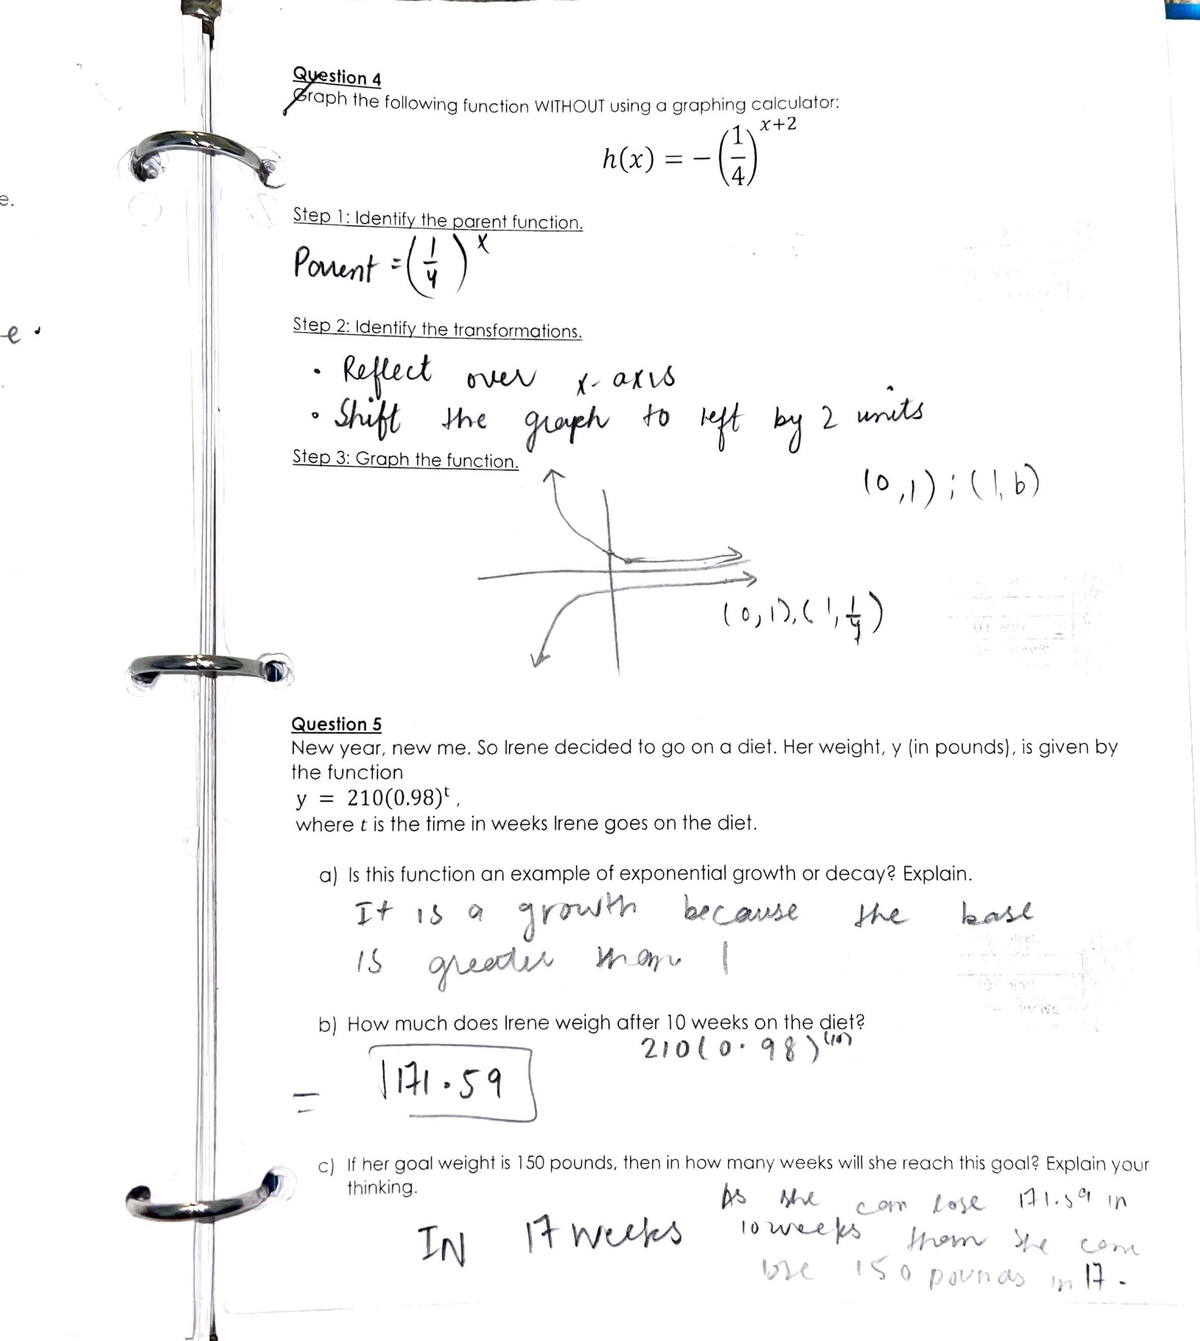 Question 4
Graph the following function WITHOUT using a graphing calculator:
h(x) = −(1/4)^(x+2)
e.
Step 1: Identify the parent function.
Parent = (1/4)^x
Step 2: Identify the transformations.
e.
• Reflect over x-axis
• Shift the graph to left by 2 units
Step 3: Graph the function.
(0,1); (1,b)
(0,1), (1,1/4)
Question 5
New year, new me. So Irene decided to go on a diet. Her weight, y (in pounds), is given by
the function
y = 210(0.98)^t ,
where t is the time in weeks Irene goes on the diet.
a) Is this function an example of exponential growth or decay? Explain.
It is a growth because the base
is greater than 1
b) How much does Irene weigh after 10 weeks on the diet?
210(0.98)^(10)
= 171.59
c) If her goal weight is 150 pounds, then in how many weeks will she reach this goal? Explain your
thinking.
As she can lose 171.59 in
IN 17 weeks
10 weeks then she can
lose 150 pounds in 17.